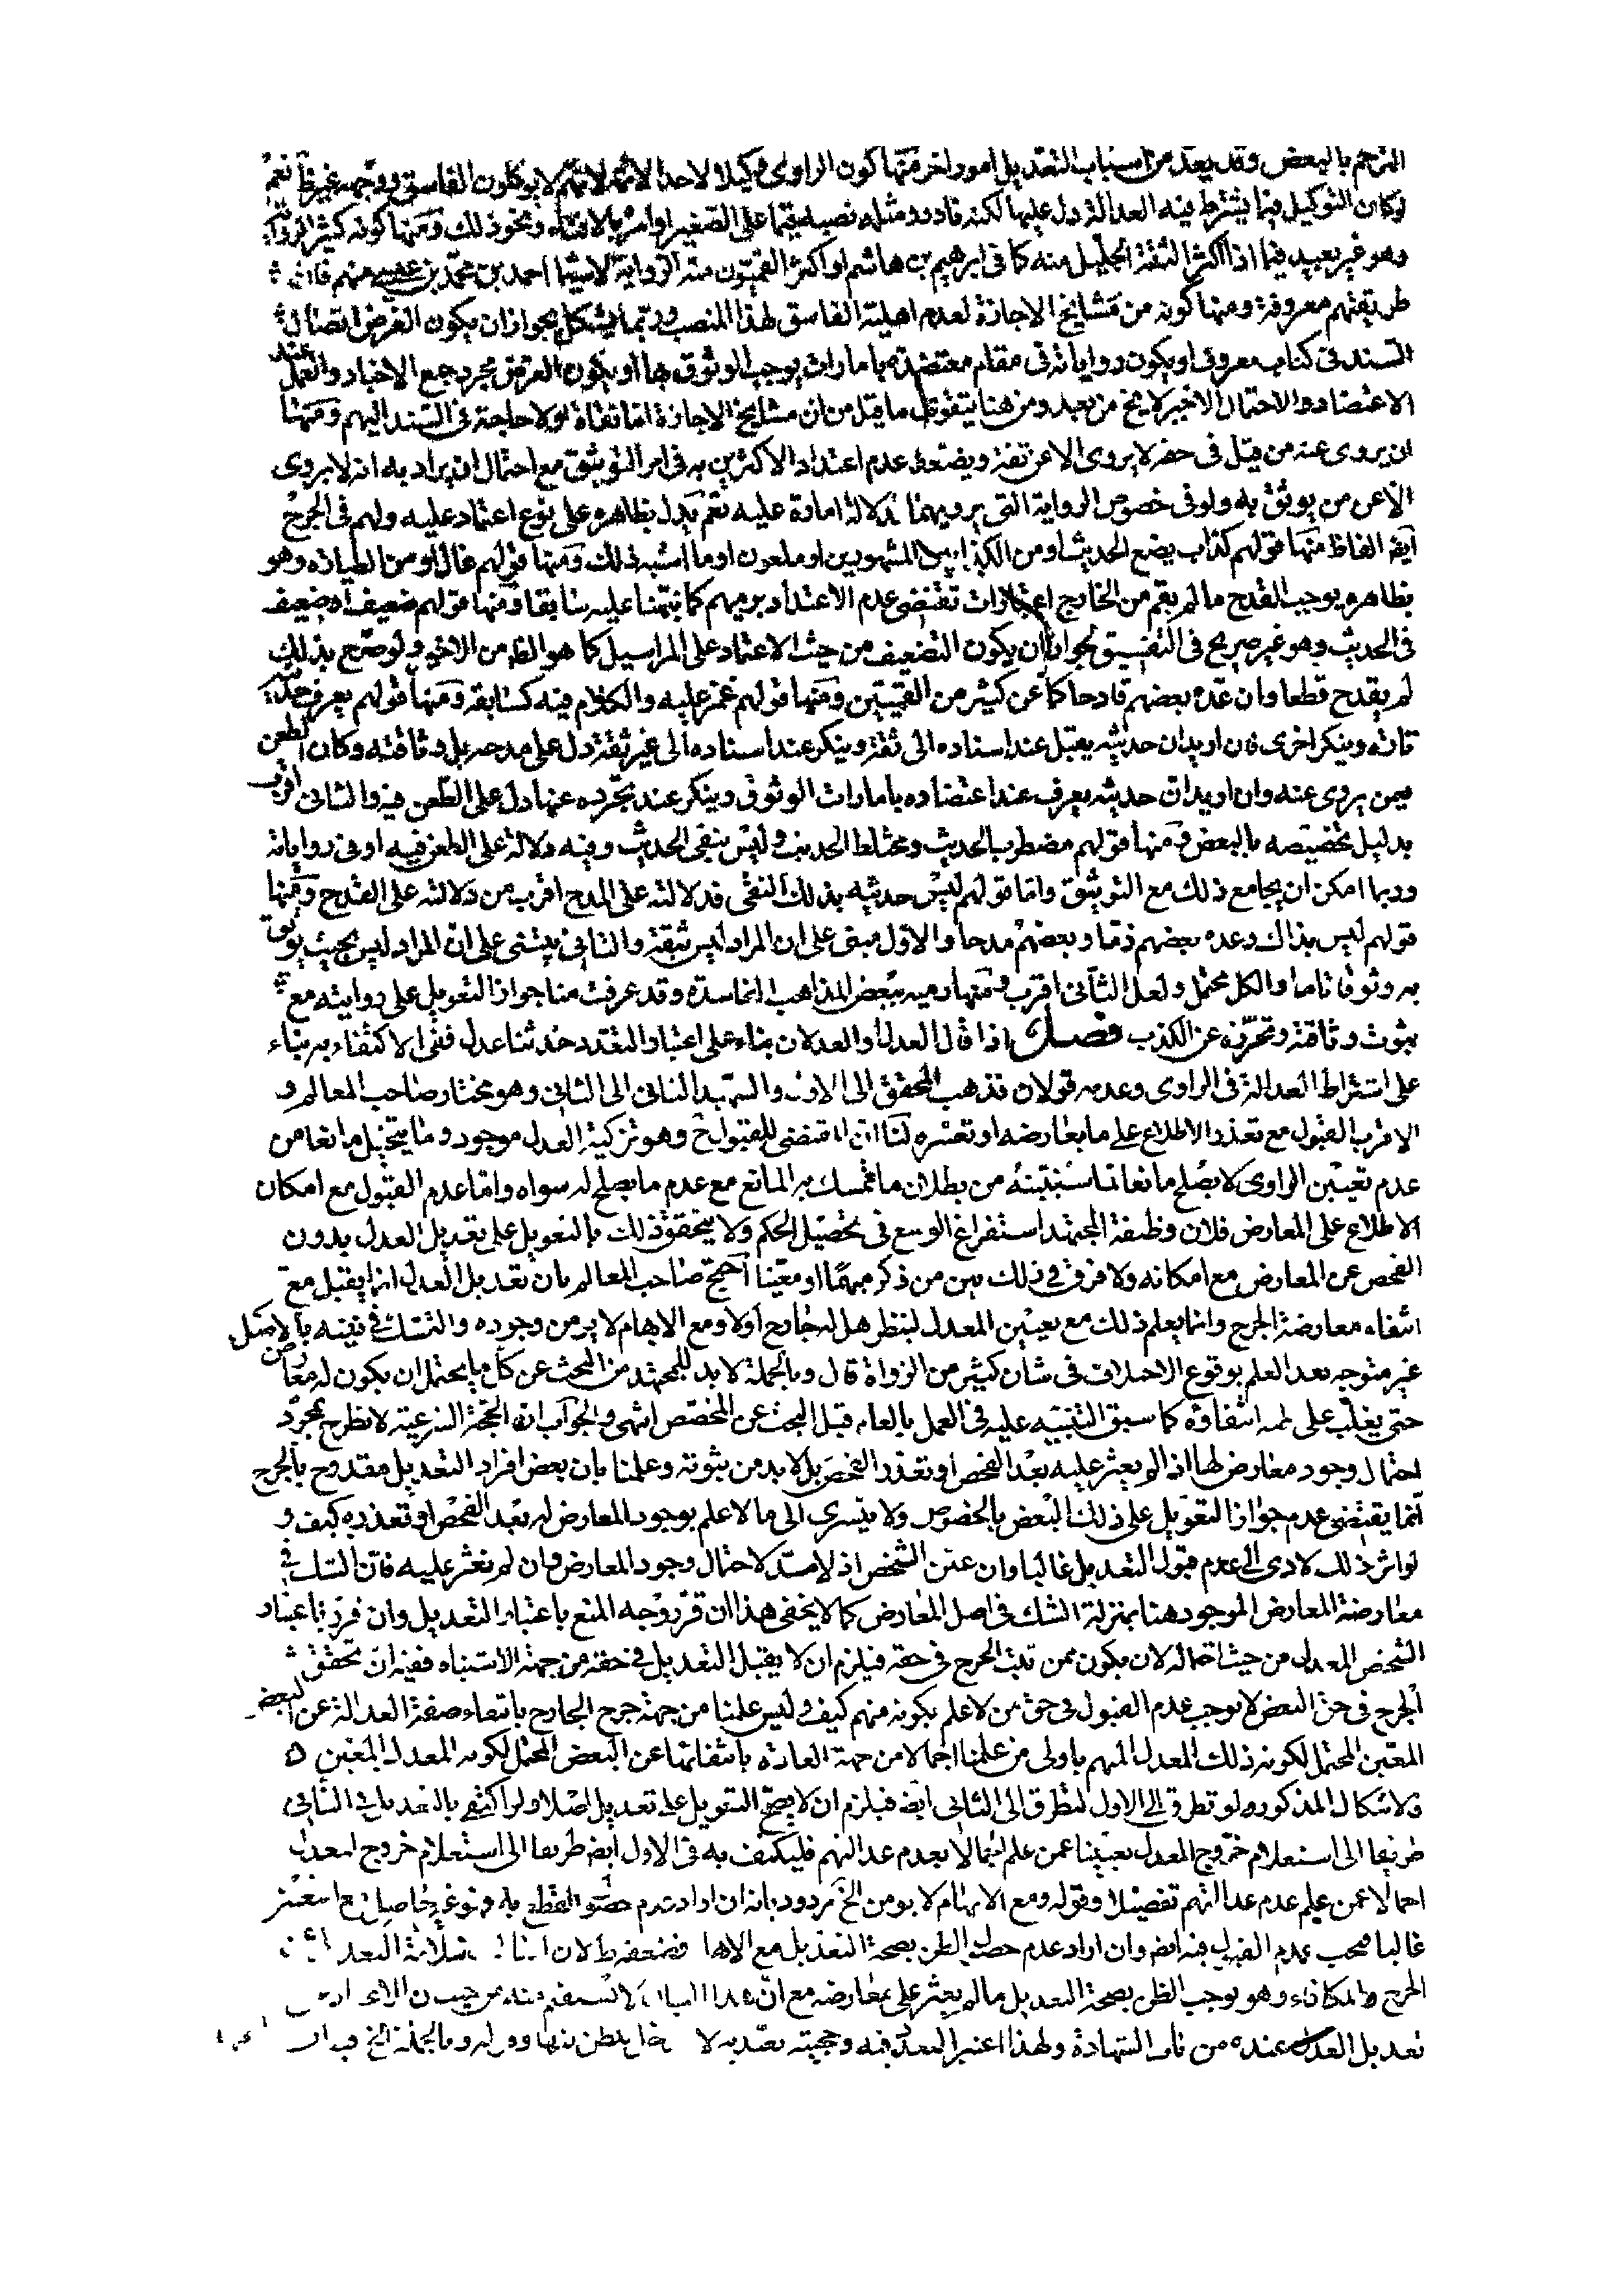 الترحم بالبعض وقد يعد من اسباب التعديل امور اخر منها كون الراوى وكيلا لاحد الائمة لانهم لا يوكلون الفاسق ووجهه غير ظ نعم
لو كان التوكيل فيما يشترط فيه العدالة دل عليها لكنه نادر ومثله نصبه قيما على الصغير او امره بالافتاء ونحو ذلك ومنها كونه كثير الرواية
وهو غير بعيد فيما اذا اكثر الثقة الجليل منه كما فى ابرهيم بن هاشم او اكثر القميون منه الرواية لا سيما احمد بن محمد بن عيسى منهم فان
طريقتهم معروفة ومنها كونه من مشايخ الاجازة لعدم اهلية الفاسق لهذا المنصب وربما يشكل بجواز ان يكون الغرض اتصال
السند فى كتاب معروف او يكون رواياته فى مقام معتضدة بامارات يوجب الوثوق بها او يكون الغرض مجرد جمع الاخبار والعمل عند
الاعتضاد والاحتمال الاخير لا يخ من بعد ومن هنا يتقوى ما قيل من ان مشايخ الاجازة اما ثقاة او لا حاجة فى السند اليهم ومنها
ان يروى عنه من قيل فى حقه لا يروى الا عن ثقة ويضعفه عدم اعتداد الاكثرين به فى امر التوثيق مع احتمال ان يراد به انه لا يروى
الا عن من يوثق به ولو فى خصوص الرواية التى يرويها لدلالة امارة عليه نعم يدل بظاهره على نوع اعتماد عليه ولهم فى الجرح
ايضا الفاظ منها قولهم كذاب يضع الحديث او من الكذابين المشهورين او ملعون او ما اشبه ذلك ومنها قولهم غال او من الطيارة وهو
بظاهره يوجب القدح ما لم يقم من الخارج اعتبارات تقتضى عدم الاعتداد برميهم كما نبهنا عليه سابقا ومنها قولهم ضعيف او ضعيف
فى الحديث وهو غير صريح فى التفسيق لجواز ان يكون التضعيف من حيث الاعتماد على المراسيل كما هو الظ من الاخير ولو صرح بذلك
لم يقدح قطعا وان عده بعضهم قادحا كما عن كثير من القميين ومنها قولهم غمز عليه والكلام فيه كسابقه ومنها قولهم يعرف حديثه
تارة وينكر اخرى فان اريد ان حديثه يقبل عند اسناده الى ثقة وينكر عند اسناده الى غير ثقة دل على مدحه بل وثاقته وكان الطعن
فيمن يروى عنه وان اريد ان حديثه يعرف عند اعتضاده بامارات الوثوق وينكر عند تجرده عنها دل على الطعن فيه والثانى اقرب
بدليل تخصيصه بالبعض ومنها قولهم مضطرب الحديث ومختلط الحديث وليس بنقى الحديث وفيه دلالة على الطعن فيه او فى رواياته
وربما امكن ان يجامع ذلك مع التوثيق واما قولهم ليس حديثه بذلك النقى فدلالته على المدح اقرب من دلالته على القدح ومنها
قولهم ليس بذاك وعده بعضهم ذما وبعضهم مدحا والاول مبنى على ان المراد ليس بثقة والثانى يبتنى على ان المراد ليس بحيث يوثق
به وثوقا تاما والكل محتمل ولعل الثانى اقرب ومنها رميه ببعض المذاهب الفاسدة وقد عرفت منا جواز التعويل على روايته مع
ثبوت وثاقته وتحرزه عن الكذب فصل اذا قال العدل او العدلان بناء على اعتبار التعدد حدثنا عدل ففى الاكتفاء به بناء
على اشتراط العدالة فى الراوى وعدمه قولان فذهب المحقق الى الاول والشهيد الثانى الى الثانى وهو مختار صاحب المعالم و
الاقرب القبول مع تعذر الاطلاع على ما يعارضه او تعسره لنا ان المقتضى للقبول ح وهو تزكية العدل موجود وما يتخيل مانعا من
عدم تعيين الراوى لا يصلح مانعا لما سنبينه من بطلان ما تمسك به المانع مع عدم ما يصلح له سواه واما عدم القبول مع امكان
الاطلاع على المعارض فلان وظيفة المجتهد استفراغ الوسع فى تحصيل الحكم ولا يتحقق ذلك بالتعويل على تعديل العدل بدون
الفحص عن المعارض مع امكانه ولا فرق فى ذلك بين من ذكر مبهما او معينا احتج صاحب المعالم بان تعديل العدل انما يقبل مع
انتفاء معارضة الجرح وانما يعلم ذلك مع تعيين المعدل لينظر هل له جارح او لا ومع الابهام لا يؤمن وجوده والتمسك فى نفيه بالاصل
غير متوجه بعد العلم بوقوع الاختلاف فى شان كثير من الرواة قال وبالجملة لا بد للمجتهد من البحث عن كل ما يحتمل ان يكون له معارض
حتى يغلب على ظنه انتفاؤه كما سبق التنبيه عليه فى العمل بالعام قبل البحث عن المخصص انتهى والجواب ان الحجة الشرعية لا تطرح بمجرد
احتمال وجود معارض لها اذا لم يعثر عليه بعد الفحص او تعذر الفحص بل لا بد من ثبوته وعلمنا بان بعض افراد التعديل مقدوح بالجرح
انما يقتضى عدم جواز التعويل على ذلك البعض بالخصوص ولا يتسرى الى ما لا علم بوجود المعارض له بعد الفحص او تعذره كيف و
لو اثر ذلك لادى الى عدم قبول التعديل غالبا وان عين الشخص اذ لا مسد لاحتمال وجود المعارض وان لم نعثر عليه فان الشك فى
معارضة المعارض الموجود هنا بمنزلة الشك فى اصل المعارض كما لا يخفى هذا ان قرر وجه المنع باعتبار التعديل وان قرر باعتبار
الشخص المعدل من حيث احتماله لان يكون ممن ثبت الجرح فى حقه فيلزم ان لا يقبل التعديل فى حقه من جهة الاشتباه ففيه ان تحقق
الجرح فى حق البعض لا يوجب عدم القبول فى حق من لا علم بكونه منهم كيف وليس علمنا من جهة جرح الجارح بانتفاء صفة العدالة عن البعض
المعين المحتمل لكونه ذلك المعدل المبهم باولى من علمنا اجمالا من جهة العادة بانتفائها عن البعض المحتمل لكونه المعدل المعين
فالاشكال المذكور لو تطرق الى الاول لتطرق الى الثانى ايضا فيلزم ان لا يصح التعويل على تعديل اصلا ولو اكتفى بالتعديل فى الثانى
طريقا الى استعلام خروج المعدل تعيينا عمن علم اجمالا بعدم عدالتهم فليكتف به فى الاول ايضا طريقا الى استعلام خروج المعدل
اجمالا عمن علم عدم عدالتهم تفصيلا وقوله ومع الابهام لا يؤمن الخ مردود بانه ان اراد عدم حصول القطع به فهو غير حاصل مع التعيين
غالبا فيجب عدم القبول فيه ايضا وان اراد عدم حصول الظن بصحة التعديل مع الابهام فضعفه ظ لان سلامة التعديل عن
الجرح والمكافاء وهو يوجب الظن بصحة التعديل ما لم يعثر على معارضه مع ان هذا البيان لا يستقيم منه من حيث ان
تعديل العدل عنده من باب الشهادة ولهذا اعتبر التعدد فيه وحجيته تعبدية لا وقوله وبالجملة الخ